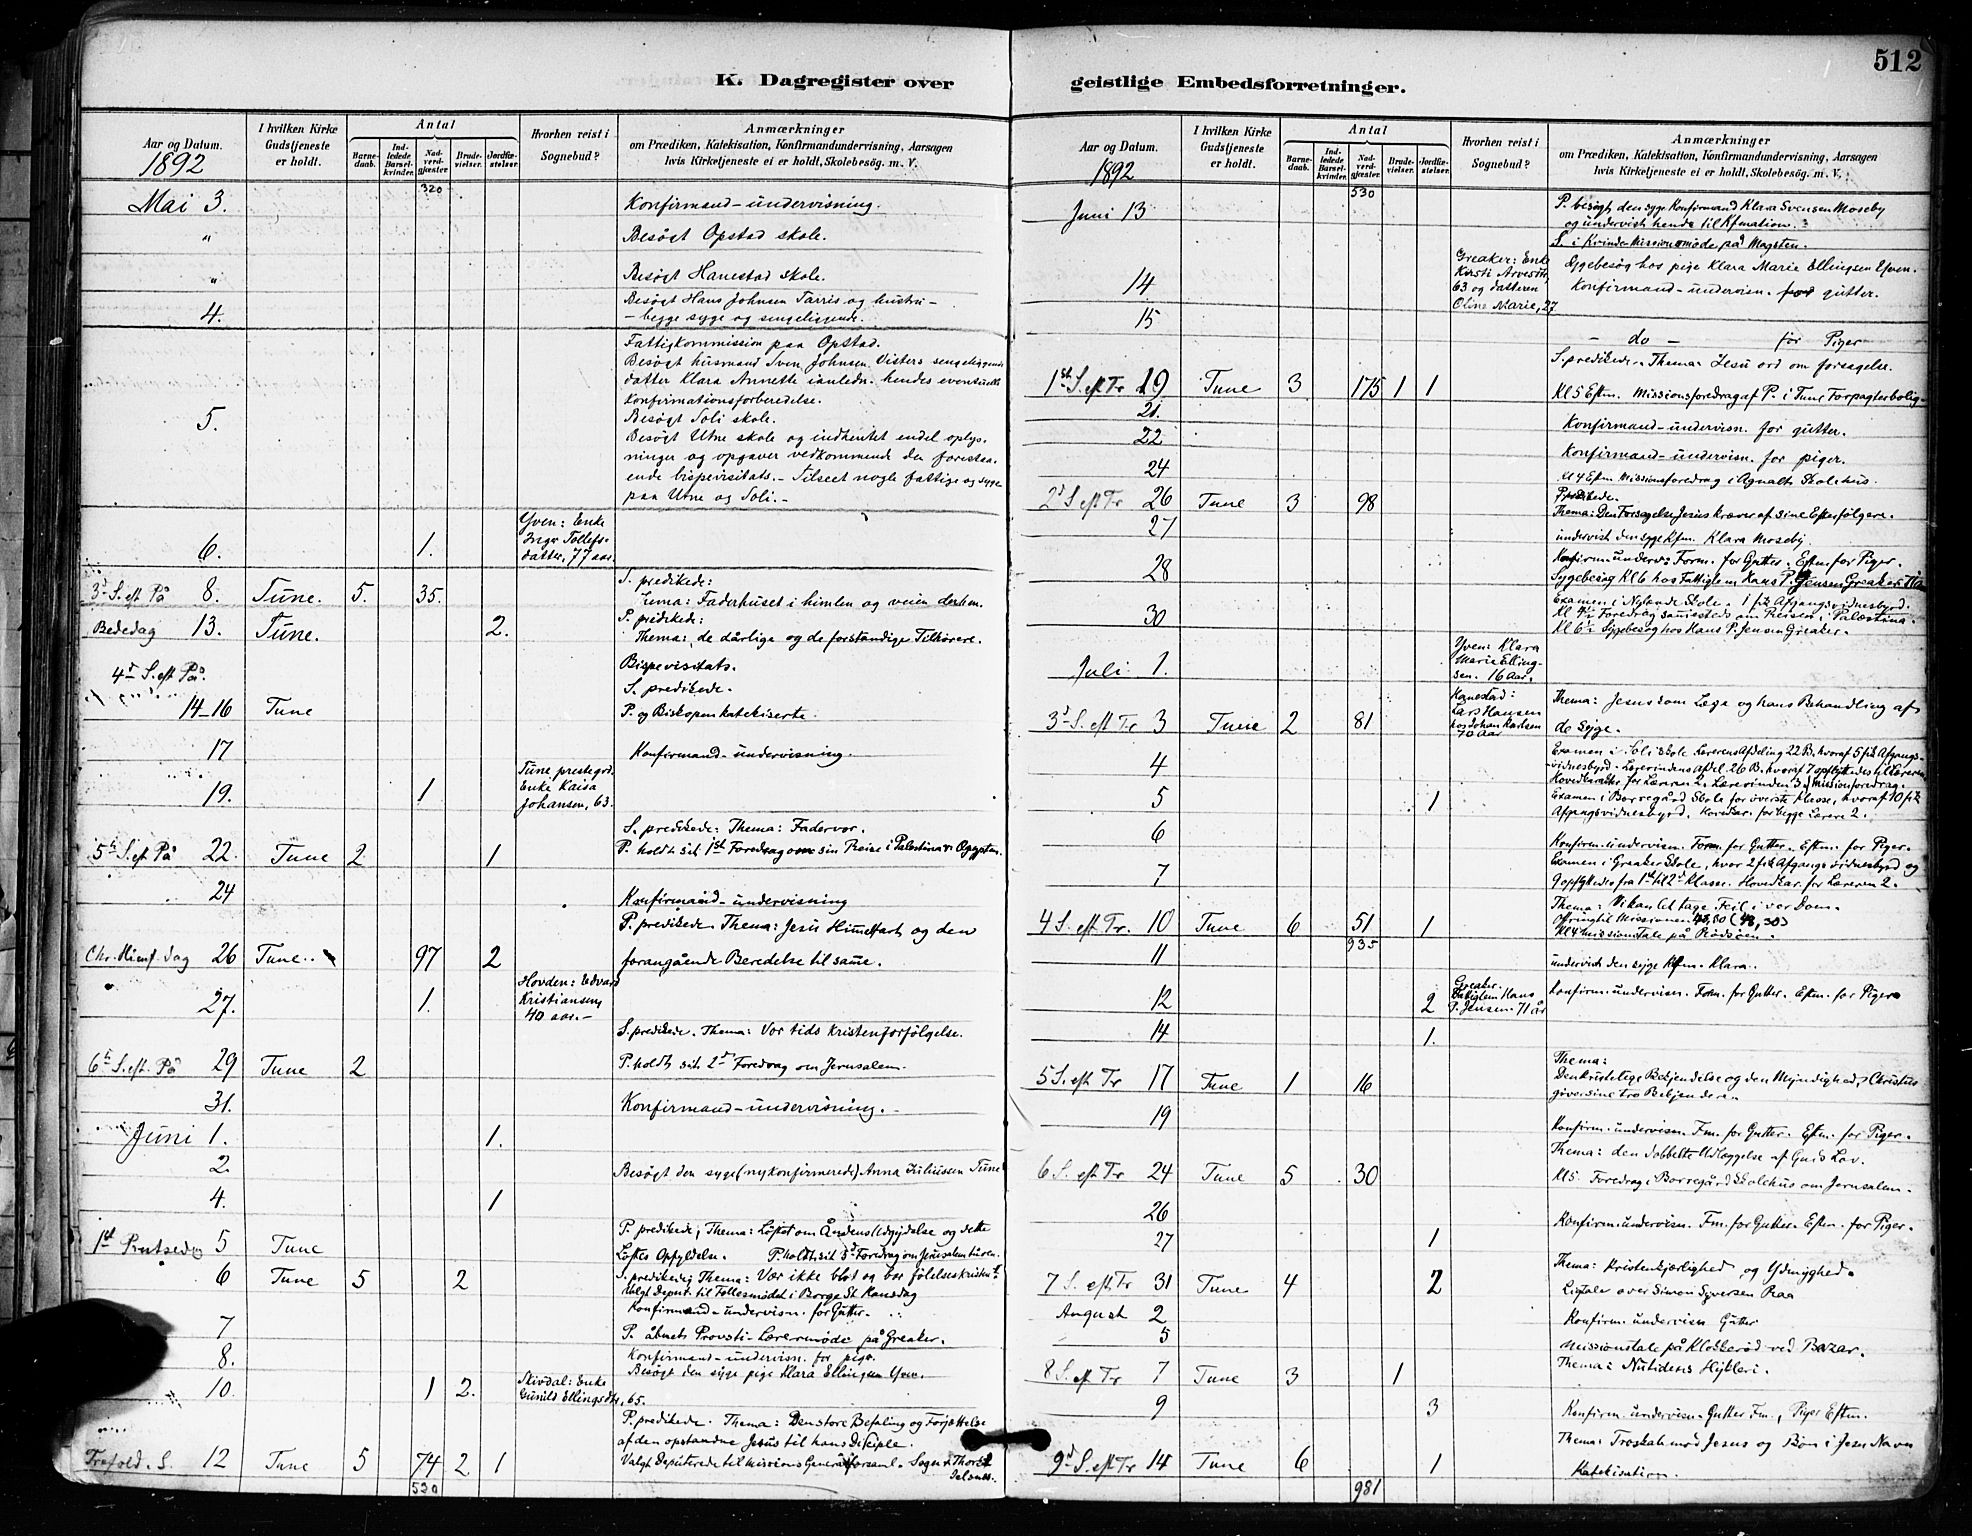 512
K. Dagregister over
geistlige Embedsforretninger.
Aar og Datum.
1892
I hvilken Kirke
Gudstjeneste
er holdt.
Antal
Barne-
daab.
Ind-
ledede
Barsel-
kvinder.
Nad-
verd-
gjæster.
Brude-
vielser.
Jordfæ-
stelser.
Hvorhen reist i
Sognebud?
Anmærkninger
om Prædiken, Katekisation, Konfirmandundervisning, Aarsagen
hvis Kirketjeneste ei er holdt, Skolebesøg. m. V.
320
Mai 3. Konfirmand-undervisning.
" Besøgt Opstad skole.
" Besøgt Hanestad skole.
Besøgt Hans Johnsen Tarris og hustru -
4. - begge syge og sengeliggende.
Fattigkommission paa Opstad.
Besøgt husmand Sven Johnsen Visters sengeliggende
datter Klara Annette ianledn. hendes eventuelle
Konfirmationsforberedelse.
5. Besøgt Soli skole.
Besøgt Utne skole og indhentet endel oplys-
ninger og opgaver vedkommende den forestaa-
ende bispevisitats. - Tilseet nogle fattige og syge
paa Utne og Soli. -
Yven: Enke
6. 1. Inger Tollefs-
datter, 77 aar.
S. predikede:
3d S. eft På 8. Tune. 5. 35. Tema: Faderhuset i himlen og veien derhen.
P. predikede:
Bededag 13. Tune. 2. Thema: de dårlige og de forstandige Tilhørere.
4d S. eft På. Bispevisitats.
S. predikede.
14-16 Tune P. og Biskopen katekiserte.
17 Konfirmand-undervisning.
Tune prestegrd.
19. 1 Enke Kaisa
Johansen, 63.
S. predikede: Thema: Fadervor.
5te S. eft På 22. Tune 2 1 P. holdt sit 1st Foredrag om sin Reise i Palestina & Ægypten.
24 Konfirmand-undervisning
P. predikede Thema: Jesu Himelfart og den
Chr. Himf. dag 26 Tune. 97 2 forangående Beredelse til same.
Hovden: Edvard
27. 1. Kristiansen,
40 aar. -
S. predikede. Thema: Vor tids kristenforfølgelse.
6te S. eft. På 29 Tune 2 P. holdt sit 2d Foredrag om Jerusalem.
31. Konfirmand-undervisning. -
Juni 1. 1.
2. Besøgt den syge (nykonfirmerede) Anna Juliussen Tune
4. 1
P. predikede, Thema: Løftet om Åndens Udgydelse og dette
1st Pintsedag 5 Tune Løftes Opfyldelse. P. holdt sit 3d Foredrag om Jerusalemturen.
6 Tune 5 2 S. predikede, Thema: Vær ikke blot og bar følelseskristen!
Valgt Deput. til Fællesmødet i Borge St. Hansdag
Konfirmand-undervisn. for Gutter.
7 P. åbnet Provsti-Lærermøde på Greaker.
8. Konfirmand-undervisn. for piger.
Besøgt den syge pige Klara Ellingsen Yven.
10. 1 2. Skivdal: Enke
Gunild Ellingsdtr., 65.
P. predikede. Thema: Den store Befaling og Forjættelse
af den opstandne Jesus til hans Disciple.
Trefold. S. 12 Tune 5 74 2 1 Valgt Deputerede til Missions Generalforsaml.
530
Aar og Datum.
1892
I hvilken Kirke
Gudstjeneste
er holdt.
Antal
Barne-
daab.
Ind-
ledede
Barsel-
kvinder.
Nad-
verd-
gjæster.
Brude-
vielser.
Jordfæ-
stelser.
Hvorhen reist i
Sognebud?
Anmærkninger
om Prædiken, Katekisation, Konfirmandundervisning, Aarsagen
hvis Kirketjeneste ei er holdt, Skolebesøg. m. V.
530
P. besøgt den syge Konfirmand Klara Svensen Moseby
Juni 13 og undervist hende til Kfmation.
S. i Kvinde Missionsmøde på Magsten.
Greaker: Enke
Kirsti Arvesdtr,
63 og datteren
Oline Marie, 27
Sygebesøg hos pige Klara Marie Ellingsen Yven.
14 Konfirmand-undervisn. for gutter.
15 - do - for Piger
S. predikede. Thema: Jesu ord om forsagelse.
1st S. eft Tr. 19 Tune 3 175 1 1 Kl 5 Eftm. Missionsforedrag af P. i Tune Forpagterbolig
21. Konfirmand-undervisn. for gutter.
22 Konfirmand-undervisn. for piger.
24 Kl 4 Eftm Missionsforedrag i Agnalt Skolehus.
Predikede.
2d S eft Tr 26 Tune 3 98 Thema: Den Forsagelse Jesus kræver af sine Efterfølgere.
27 undervist den syge Kfm. Klara Moseby.
Konfirm-underv: Form. for Gutter. Eftm. for Piger.
28 Sygebesøg Kl 6 hos Fattiglem Hans P. Jensen Greaker
Examen i Nylande Skole. 1 fik Afgangsvidnesbyrd.
30 Kl 4½ Foredrag sammesteds om Reisen i Palæstina.
Kl 6½ Sygebesøg hos Hans P. Jensen Greaker.
Juli 1. Yven: Klara
Marie Elling-
sen. 16 Aar.
Hanestad:
Lars Hansen
hos Johan Karlsen
70 Aar
Thema: Jesus som Læge og hans Behandling af
3d S. eft Tr 3 Tune 2 81 de Syge.
4 Examen i Soli skole. Lærerens Afdeling 22 B. hvoraf 5 fik Afgangs-
vidnesbyrd. Lærerindens Afdel. 26 B. hvoraf 7 opflyttedes til Læreren.
Hovedkarakter for Læreren 2. Lærerinden 3. Missionsforedrag.
5 1 Examen i Borregård Skole for øverste Klasse, hvoraf 10 fik
Afgangsvidnesbyrd. Hovedkar. for begge Lærere 2.
6 Konfirm.undervisn. Form. for Gutter. Eftm. for Piger.
Examen i Greaker Skole, hvor 2 fik Afgangsvidnesbyrd og
7 9 opflyttedes fra 1st til 2d Klasse. Hovedkar. for Læreren 2.
Thema: Vi kan let tage Feil i vor Dom.
4 S. eft Tr. 10 Tune 6 51 1 Ofring til Missionen
935 Kl 4 Missionstale på Rødsøen.
11 undervist den syge Kfm. Klara.
Greaker.
12 2 Fattiglem Hans
P. Jensen. 71 år
Konfirm.undervisn. Form. for Gutter. Eftm. for Piger
14 1.
Thema:
5 S. eft Tr 17 Tune 1 16 Den kristelige Bekjendelse og den Myndighed, Christus
giver sine tro Bekjendere.
19 Konfirm. undervisn. Fm. for Gutter. Eftm. for Piger.
Thema: den dobbelte Udlæggelse af Guds Lov.
6 S. eft Tr 24 Tune 5 30 Kl 5. Foredrag i Borregård Skolehus om Jerusalem.
26 Konfirm.undervisn. Fm. for Gutter. Eftm. for Piger.
27 1
Thema: Kristenkjærlighed og Ydmyghed.
7 S. eft Tr 31 Tune 4 2 Ligtale over Simon Syversen Raa
August 2 Konfirm. undervisn Gutter
5 Missionstale på Klokkerød ved Bazar.
8 S. eft Tr 7 Tune 3 1 Thema: Nutidens Hykleri.
9 3 Konfirm. undervisn. Gutter Fm., Piger Eftm.
Thema: Troskab mod Jesus og Bøn i Jesu Navn
9d S. eft Tr 14 Tune 6 1 Katekisation.
981